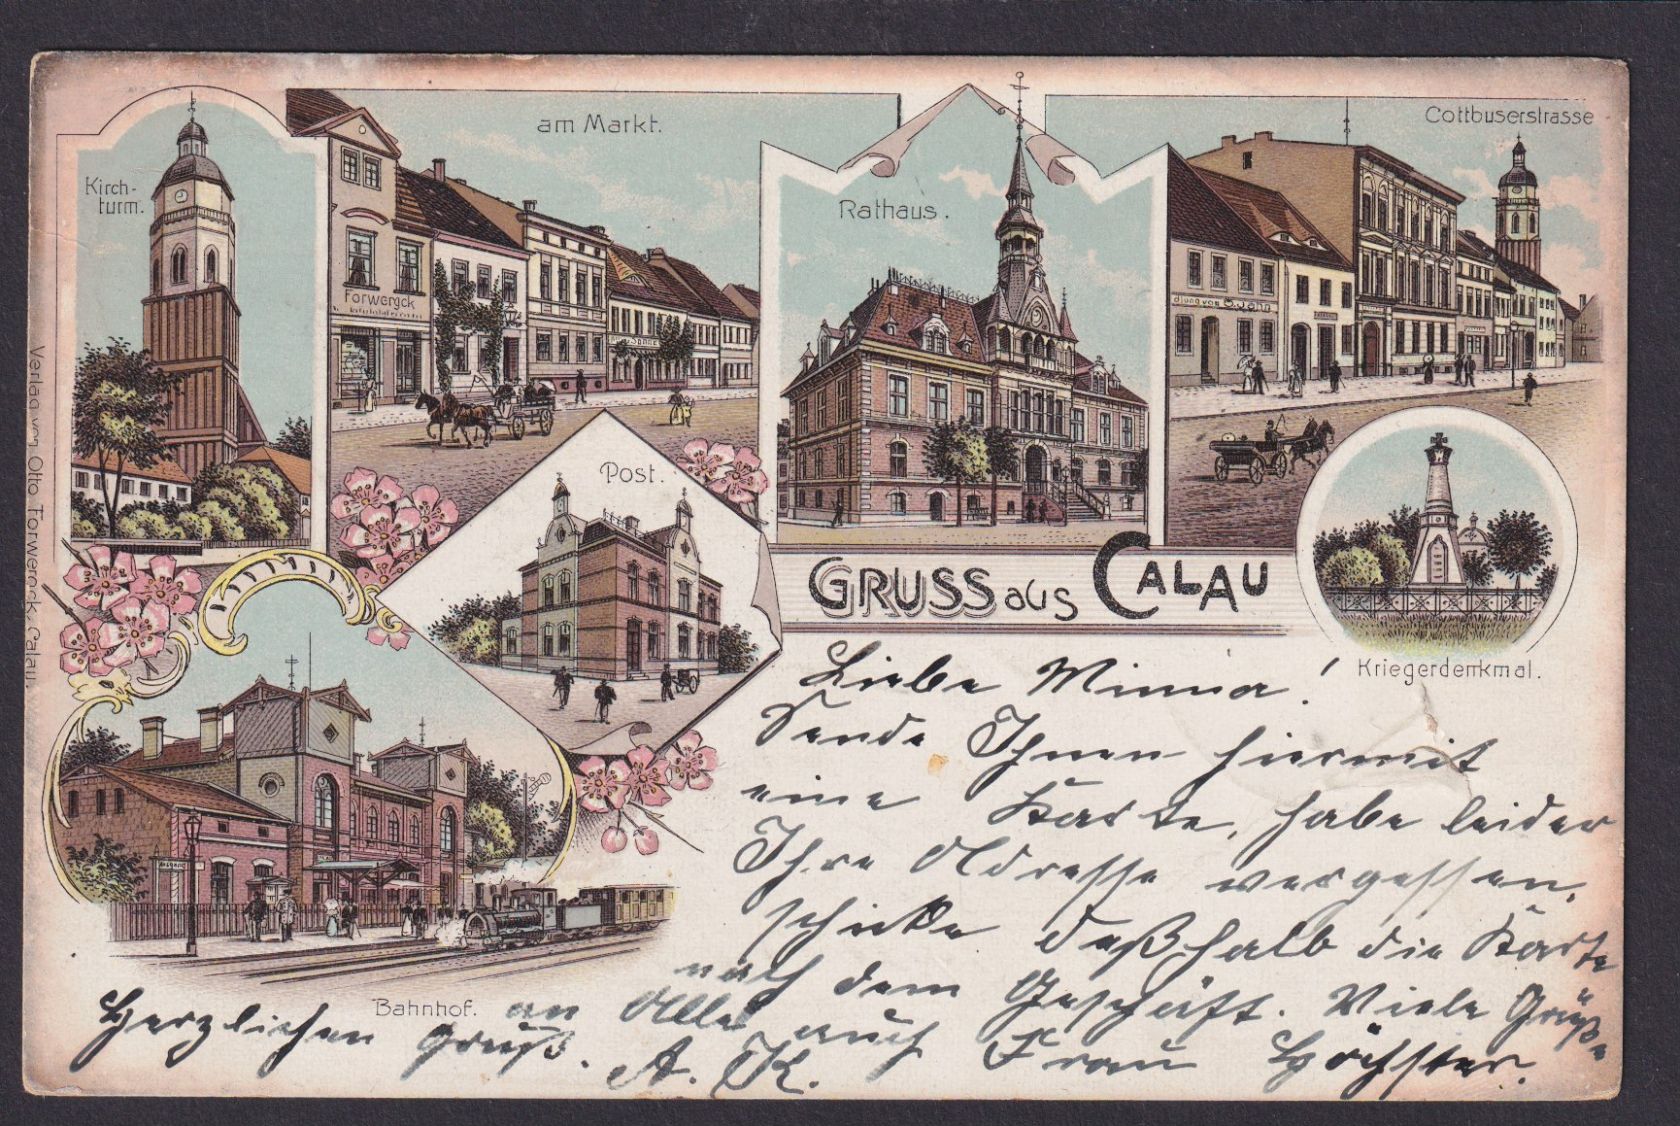 Kirch-
turm.
am Markt.
Forwergck
Sonne
Rathaus.
Cottbuserstrasse
dlung von O. Jahn
Post.
GRUSS aus CALAU
Kriegerdenkmal.
Bahnhof.
Verlag von Otto Forwergck, Calau.
Liebe Minna!
Sende Ihnen hiermit
eine Karte, habe leider
Ihre Adresse vergessen,
schicke deßhalb die Karte
nach dem Geschäft. Viele Grüße
an Alle auch Frau Höchster.
Herzlichen Gruß. A. K.